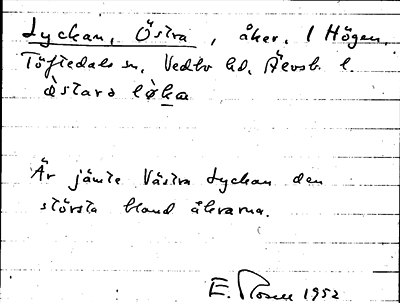 Lyckan, Östra, åker, 1 Högen,
Töftedals sn, Vedbo hd, Älvsb. l.
ø̀starə lø̀ka
Är jämte Västra Lyckan den
största bland åkrarna.
E. Rosell 1952